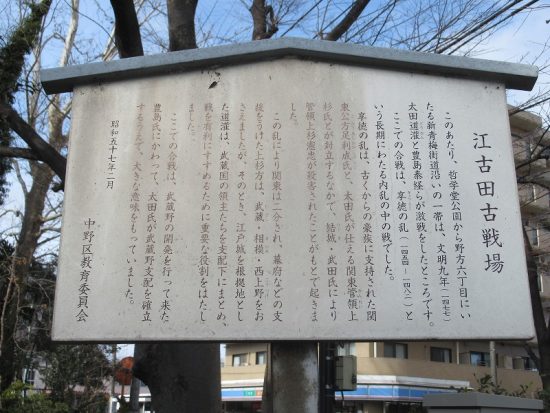 江古田古戦場
このあたり、哲学堂公園から野方六丁目にい
たる新青梅街道沿いの一帯は、文明九年(一四七七)
太田道灌と豊島泰経らが激戦をしたところです。
ここでの合戦は、享徳の乱(一四五四-一四八二)と
いう長期にわたる内乱の中の戦でした。
享徳の乱は、古くからの豪族に支持された関
東公方足利成氏と、太田氏が仕える関東管領上
杉氏とが対立するなかで、結城・武田氏により
管領上杉憲忠が殺害されたことがもとで起きま
した。
この乱により関東は二分され、幕府などの支
援をうけた上杉方は、武蔵・相模・西上野をお
さえましたが、そのとき、江戸城を根拠地とし
た道灌は、武蔵国の領主たちを支配下にまとめ、
戦を有利にすすめるために重要な役割をはたし
ました。
ここでの合戦は、武蔵野の開発を行って来た
豊島氏にかわって、太田氏が武蔵野支配を確立
するうえで、大きな意味をもっていました。
昭和五十七年二月
中野区教育委員会